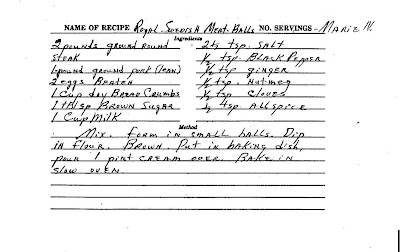 NAME OF RECIPE Royal Swedish Meat Balls NO. SERVINGS - Marie H.
Ingredients
2 pounds ground round 2½ tsp. SALT
steak ½ tsp. BLACK Pepper
1 pound ground pork (lean) ½ tsp GINGER
2 eggs BeATEN ½ tsp. NUTMEG
1 Cup dry BREAD Crumbs ½ tsp Cloves
1 Tblsp BROWN SUGAR tsp ALLSPICE
1 Cup MILK
Method
Mix. Form in small balls. Dip
in flour. BROWN. Put in baking dish,
pour 1 pint CREAM over. BAKE in
slow OVEN.